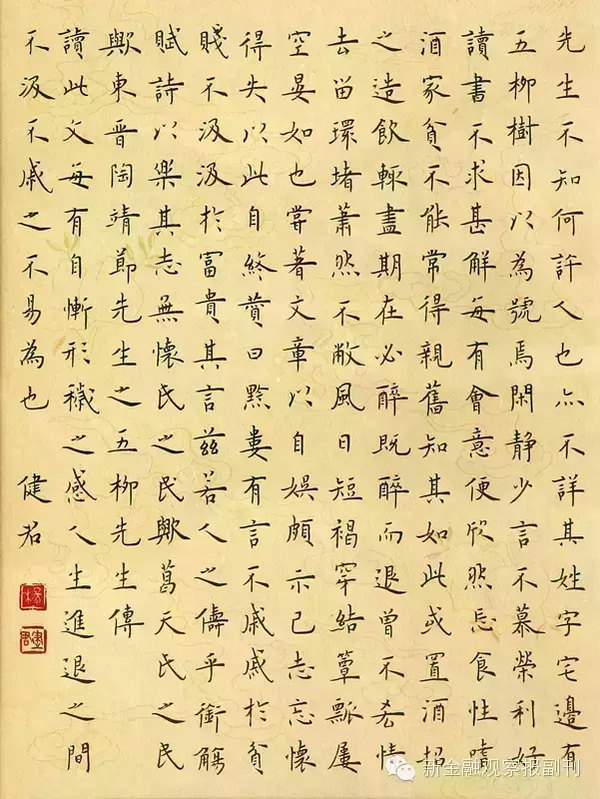 先生不知何許人也亦不詳其姓字宅邊有
五柳樹因以為號焉閑靜少言不慕榮利好
讀書不求甚解每有會意便欣然忘食性嗜
酒家貧不能常得親舊知其如此或置酒招
之造飲輒盡期在必醉既醉而退曾不吝情
去留環堵蕭然不敝風日短褐穿結簞瓢屢
空晏如也嘗著文章以自娛頗示己志忘懷
得失以此自終贊曰黔婁有言不戚戚於貧
賤不汲汲於富貴其言茲若人之儔乎銜觴
賦詩以樂其志無懷氏之民歟葛天氏之民
歟東晉陶靖節先生之五柳先生傳
讀此文每有自慚形穢之感人生進退之間
不汲不戚之不易為也 健君
新金融观察报副刊